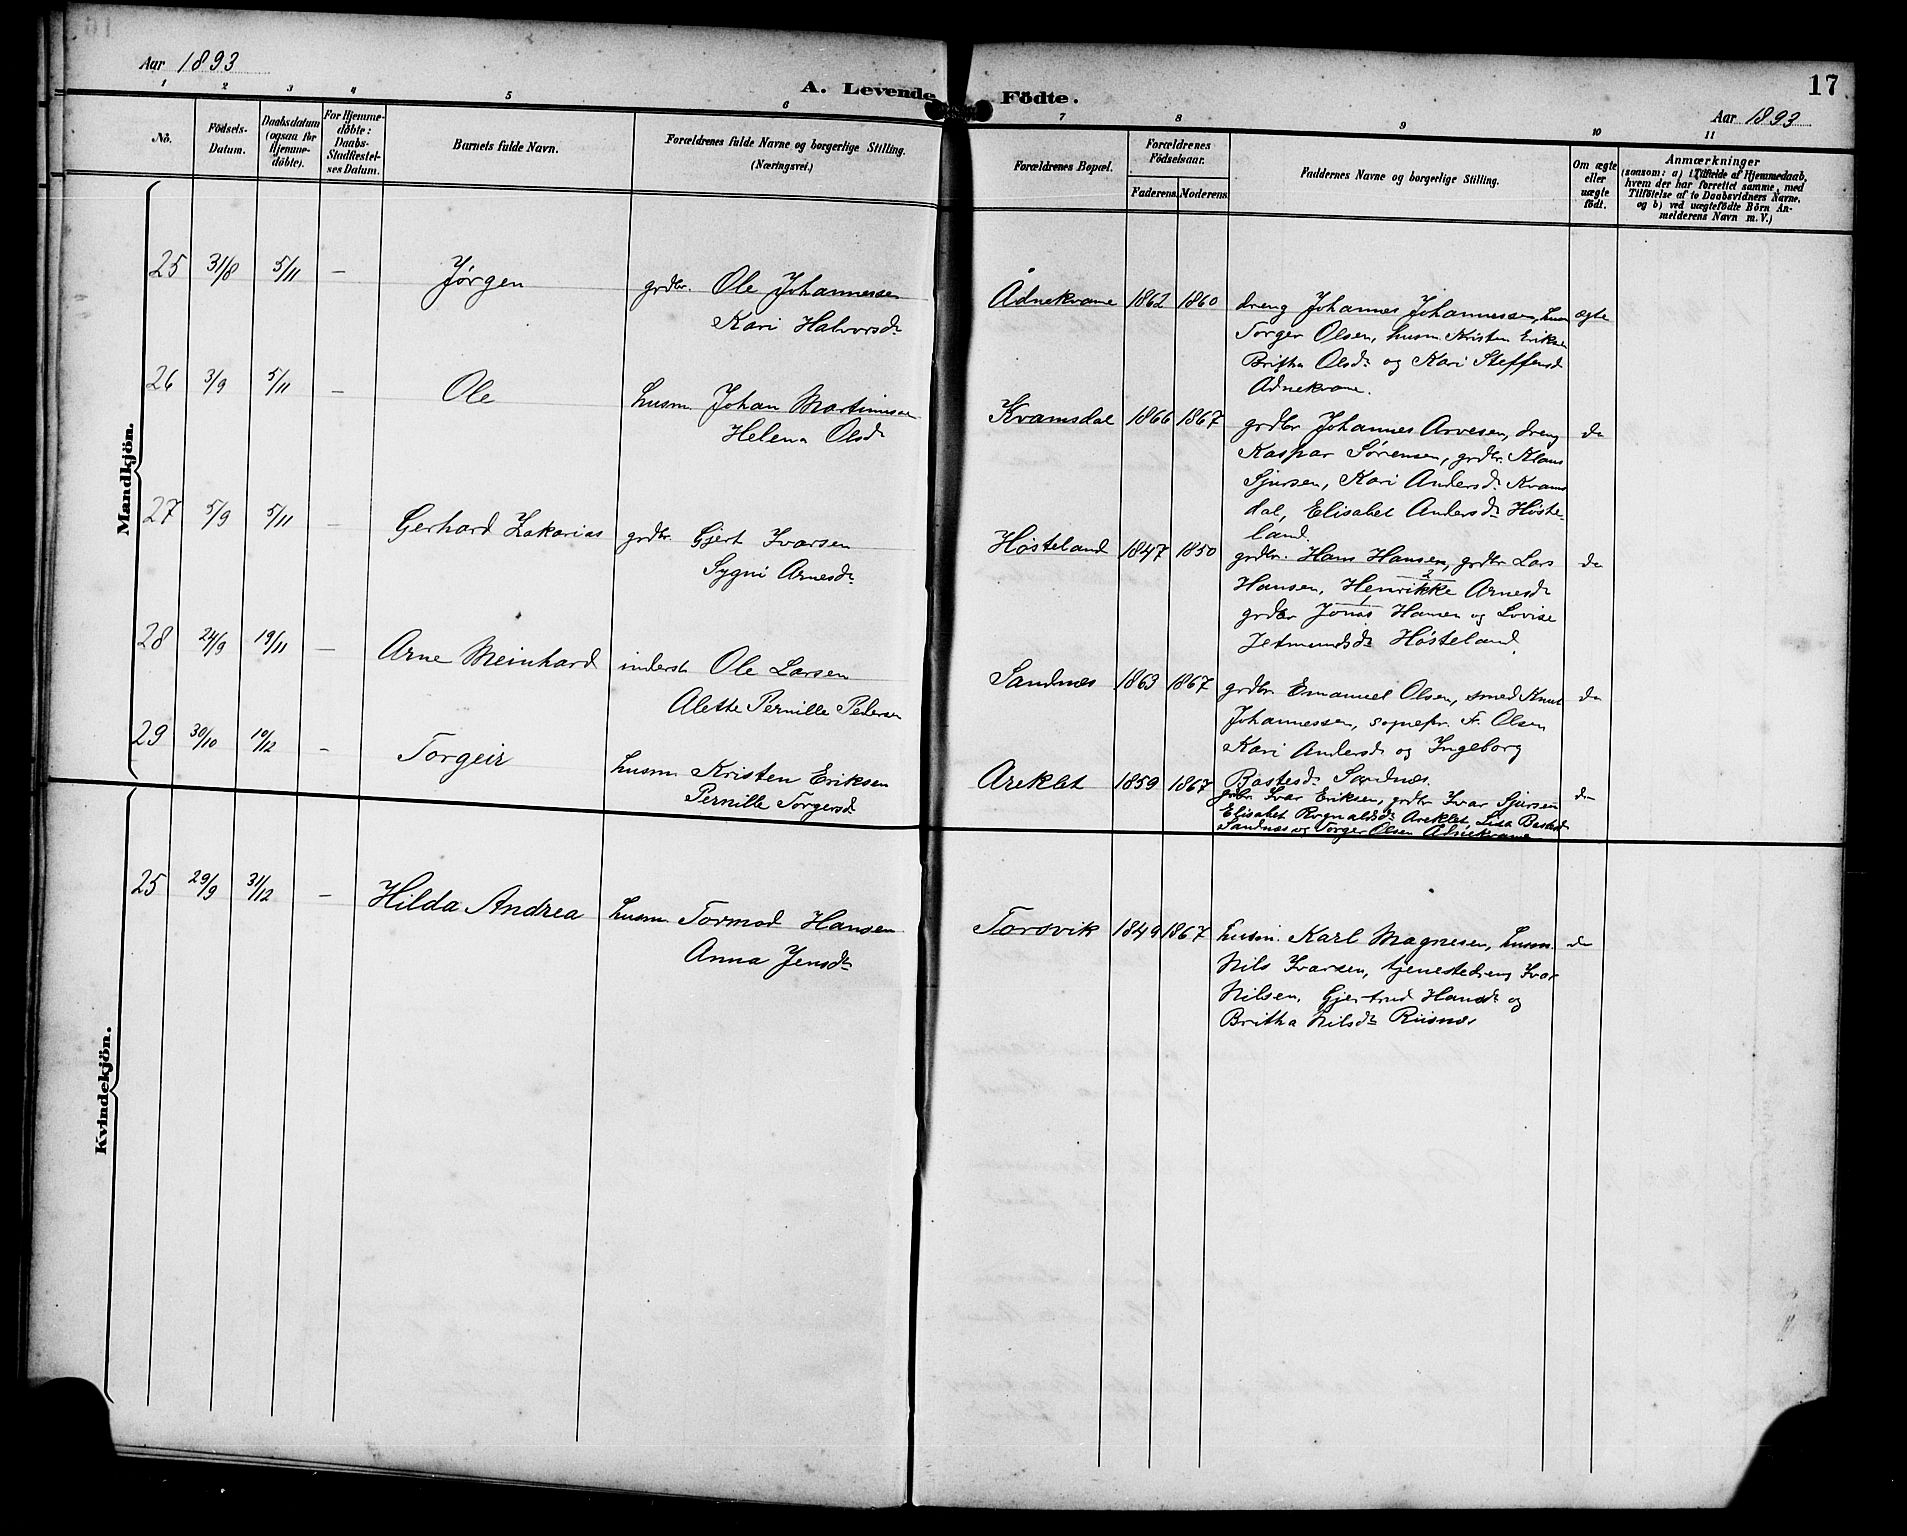 Aar 1893
A. Levende Födte.
17
Aar 1893
1 2 3 4 5 6 7 8 9 10 11
No.
Födsels-
Datum.
Daabsdatum
(ogsaa for
Hjemme-
döbte).
For Hjemme-
döbte:
Daabs-
Stadfæstel-
ses Datum.
Barnets fulde Navn.
Forældrenes fulde Navne og borgerlige Stilling.
(Næringsvei.)
Forældrenes Bopæl.
Forældrenes
Födselsaar.
Faderens.
Moderens.
Faddernes Navne og borgerlige Stilling.
Om ægte
eller
uægte
födt.
Anmærkninger
(saasom: a) i Tilfælde af Hjemmedaab,
hvem der har forrettet samme, med
Tilföielse af to Daabsvidners Navne,
og b) ved uægtefödte Börn An-
melderens Navn m. V.)
Mandkjön.
25 31/8 5/11 — Jørgen grdbr. Ole Johannessen
Kari Halvorsdr
Ådnekvame 1862 1860 dreng Johannes Johannessen, husm ægte
Torger Olsen, husm Kristen Eriksen
Britha Olsdr og Kari Steffensd
Adnekvame.
26 3/9 5/11 — Ole husm. Johan Martinusen
Helena Olsdr
Kvamsdal 1866 1867 grdbr Johannes Arvesen, dreng do
Kaspar Sørensen, grdbr. Klaus
Sjursen, Kari Andersdr Kvams
dal, Elisabet Andersdr Høste-
land.
27 5/9 5/11 — Gerhard Zakarias grdbr. Gjert Ivarsen
Sygni Arnesdr
Høsteland 1847 1850 grdbr. Hans Hansen, grdbr Lars do
Hansen, Henrikke Arnesdr
grdbr Jonas Hansen og Lovise
Jetmundsdr Høsteland.
28 24/9 19/11 — Arne Meinhard inderst Ole Larsen
Alette Pernille Pedersen
Sandnæs 1863 1867 grdbr. Emanuel Olsen, smed Knut do
Johannessen, sognepr. Fr. Olsen
Kari Andersdr og Ingeborg
Bastesdr Sandnæs.
29 30/10 10/12 — Torgeir husm Kristen Eriksen
Pernille Torgersdr
Areklet 1859 1867 grdbr. Ivar Eriksen, grdbr Ivar Sjursen do
Elisabet Rognaldsdr Areklet, Lisa Bastesdr
Sandnæs og Torger Olsen Adnekvame
Kvindekjön.
25 29/9 31/12 — Hilda Andrea husm Tormod Hansen
Anna Jensdr
Torsvik 1849 1867 husm. Karl Magnesen, husm. do
Nils Ivarsen, tjenestedreng Ivar
Nilsen, Gjertrud Hansdr og
Britha Nilsdr Risnæs